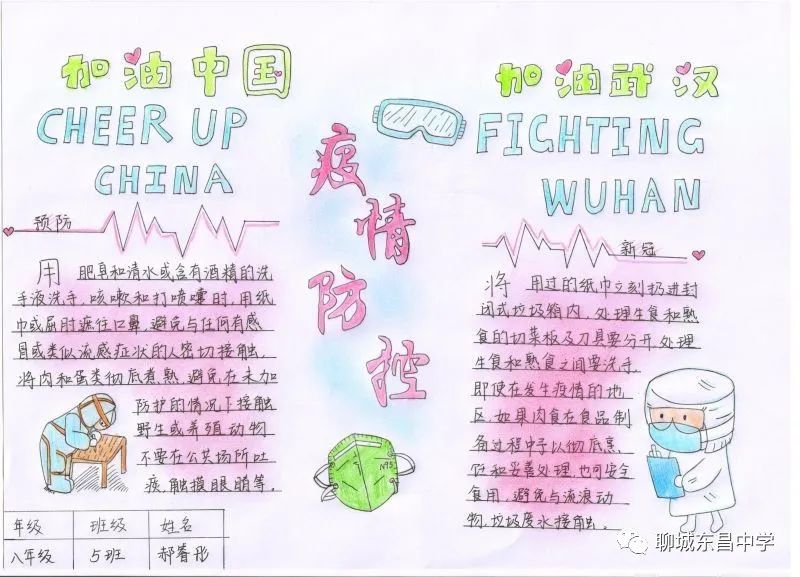 加油中国
CHEER UP
CHINA
预防
用肥皂和清水或含有酒精的洗
手液洗手,咳嗽和打喷嚏时,用纸
巾或屈肘遮住口鼻,避免与任何有感
冒或类似流感症状的人密切接触,
将肉和蛋类彻底煮熟,避免在未加
防护的情况下接触
野生或养殖动物
不要在公共场所吐
痰,触摸眼睛等。
年级 班级 姓名
八年级 5班
疫情防控
N95
加油武汉
FIGHTING
WUHAN
新冠
将用过的纸巾立刻扔进封
闭式垃圾箱内,处理生食和熟
食的切菜板及刀具要分开,处理
生食和熟食之间要洗手,
即使在发生疫情的地
区,如果肉食在食品制
备过程中予以彻底烹
饪和妥善处理,也可安全
食用,避免与流浪动
物,垃圾废水接触。
聊城东昌中学